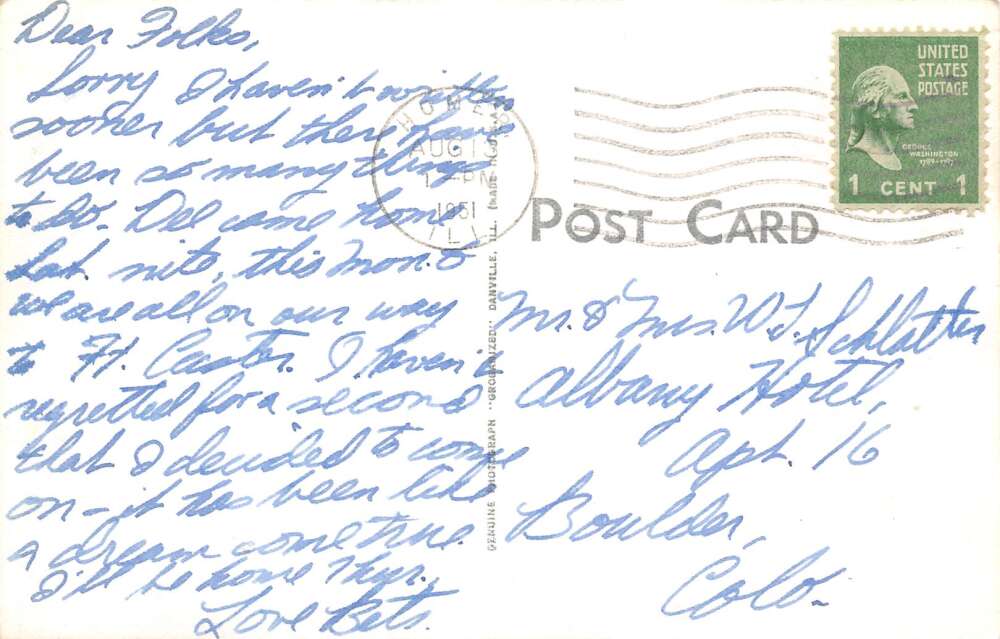 Dear Folks,
Sorry I haven't written
sooner but there have
been so many things
to do. Dee came home
Sat. nite, this Mon. &
we are all on our way
to Ft. Custer. I haven't
regretted for a second
that I decided to come
on - it has been like
a dream come true.
I'll be home Thur.,
Love Bets.
HOMER
AUG 13
1 - PM
1951
ILL.
UNITED
STATES
POSTAGE
GEORGE
WASHINGTON
1789-1797
1 CENT 1
POST CARD
GENUINE PHOTOGRAPH "GROGANIZED" DANVILLE, ILL. (MADE IN U.S.A.)
Mr. & Mrs. W. J. Schlatter
Albany Hotel,
Apt. 16
Boulder,
Colo.